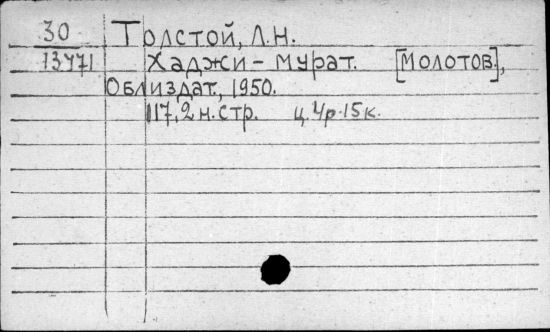 30 Толстой, Л.Н.
13471 Хаджи-Мурат. [Молотов],
Облиздат, 1950.
117,2 н.стр. ц. 4р.15к.